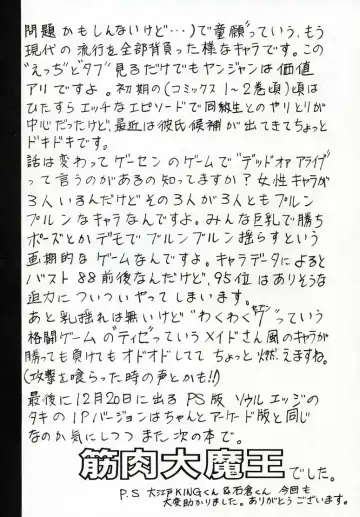 問題かもしんないけど…)で童顔っていう、もう
現代の流行を全部背負った様なキャラです。この
"えっち"と"タブ"見るだけでもヤンジャンは価値
アリですよ。初期の(コミックス1~2巻頃)頃は
ひたすらエッチなエピソードで同級生とのやりとりが
中心だったけど、最近は彼氏候補が出てきてちょっと
ドキドキです。
話は変わってゲーセンのゲームで"デッドオアアライブ"
って言うのがあるの知ってますか?女性キャラが
3人いるんだけどその3人が3人ともプルン
プルンなキャラなんですよ。みんな巨乳で勝ち
ポーズとかデモでブルンブルン揺らすという
画期的なゲームなんですよ。キャラデータによると
バスト88前後なんだけど、95位はありそうな
迫力についついやってしまいます。
あと乳揺れは無いけど"わくわく7"っていう
格闘ゲームの"ティセ"っていうメイドさん風のキャラが
勝っても負けてもオドオドしててちょっと燃えますね。
(攻撃を喰らった時の声とかも!!)
最後に12月20日に出るPS版ソウルエッジの
タキの1Pバージョンはちゃんとアーケード版と同じ
なのか気にしつつまた次の本で。
筋肉大魔王でした。
P.S 大江戸KINGくん&石倉くん今回も
大変助かりました。ありがとうございます。